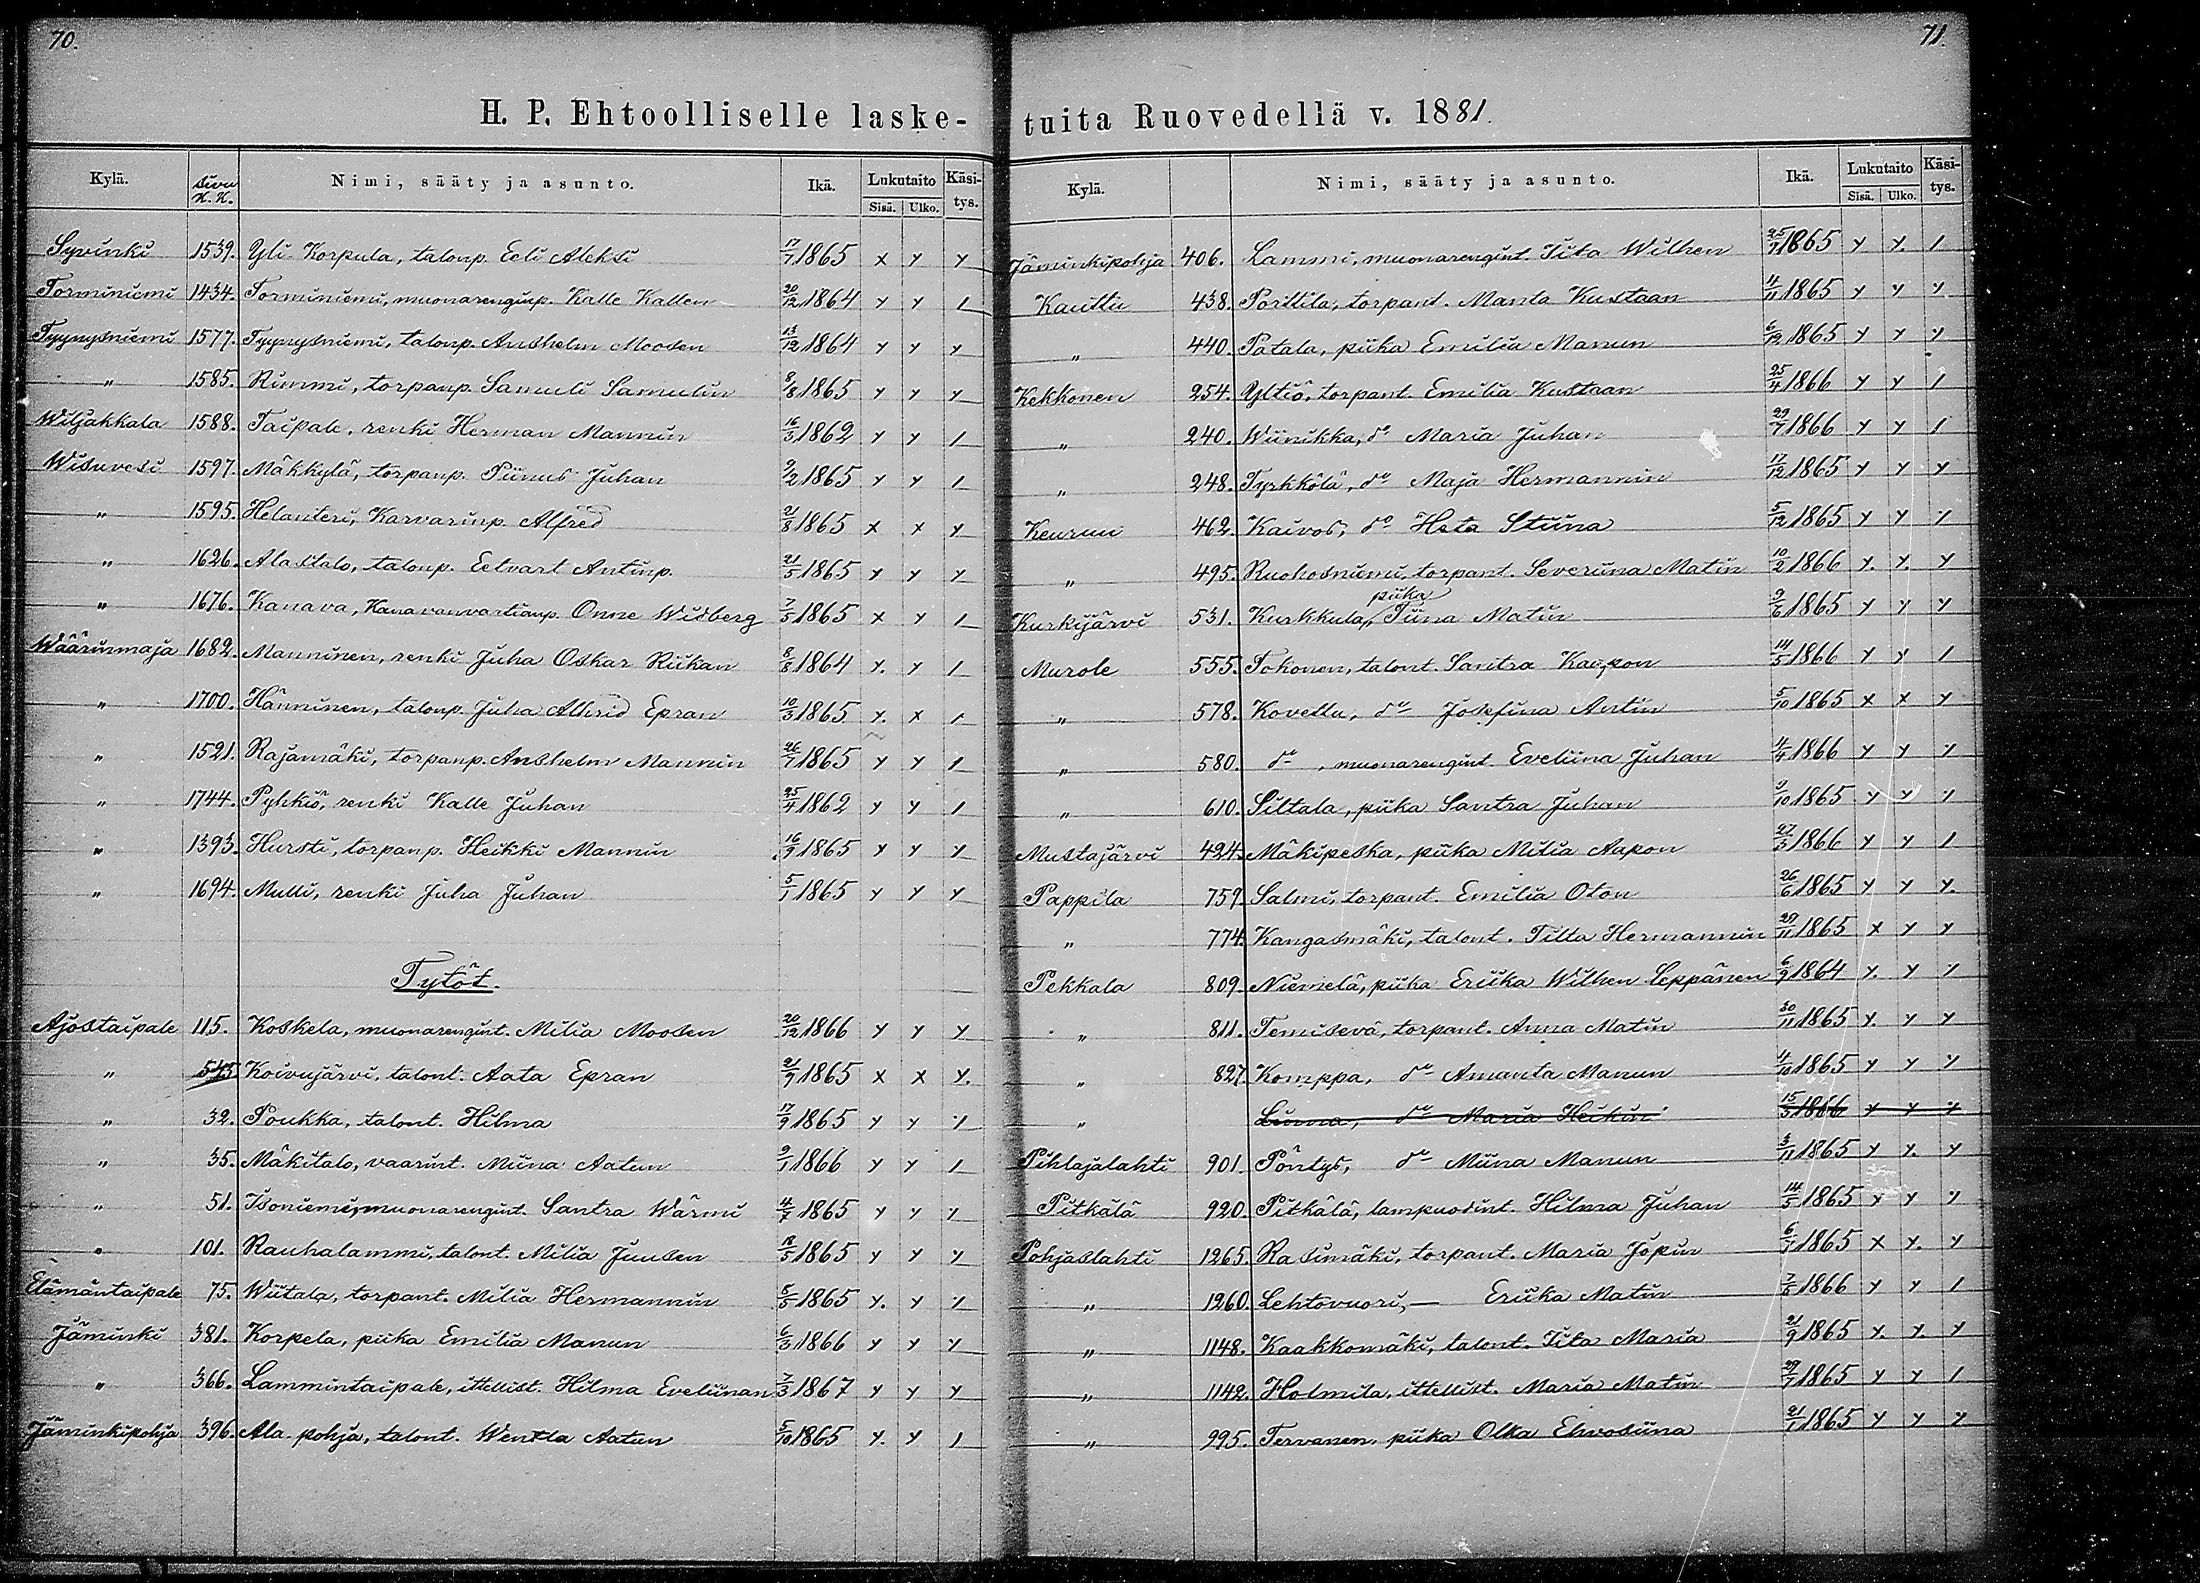 70.
H. P. Ehtoolliselle laske-
Kylä. Sivu K.K. Nimi, sääty ja asunto. Ikä. Lukutaito Käsi-
Sisä. Ulko. tys.
Syvinki 1539. Yli Korpula, talonp. Eeli Aleksi 17/7 1865 x y y
Torminiemi 1434. Torminiemi, muonarenginp. Kalle Kallen 20/12 1864 y y 1
Tyynysniemi 1577. Tyynysniemi, talonp. Anshelm Moosen 13/12 1864 y y y
" 1585. Rimmi, torpanp. Samuli Samulin 8/8 1865 y y y
Wiljakkala 1588. Taipale, renki Herman Mannin 16/3 1862 y y 1
Wisuvesi 1597. Mäkkylä, torpanp. Piinus Juhan 9/2 1865 y y 1
" 1595. Helanteri, Karvarinp. Alfred 21/8 1865 x x y
" 1626. Alastalo, talonp. Eetvart Antinp. 21/5 1865 y y y
" 1676. Kanava, Kanavanvartianp. Onne Widberg 7/5 1865 x y 1
Wäärinmaja 1682. Manninen, renki Juha Oskar Riikan 8/8 1864 y. y 1
" 1700. Hänninen, talonp. Juha Alfrid Epran 10/3 1865 y. x 1
" 1521. Rajamäki, torpanp. Anshelm Mannin 26/7 1865 y y 1
" 1744. Pyhkiö, renki Kalle Juhan 25/4 1862 y y 1
" 1393. Hursti, torpanp. Heikki Mannin 16/9 1865 y y y
" 1694. Mulli, renki Juha Juhan 5/1 1865 y y y
Tytöt.
Ajostaipale 115. Koskela, muonarengint. Milia Moosen 20/12 1866 y y y
" 545 Koivujärvi, talont. Aata Epran 21/9 1865 x x y.
" 32. Poukka, talont. Hilma 17/9 1865 y y y
" 35. Mäkitalo, vaarint. Miina Aatun 9/1 1866 y y 1
" 51. Isoniemi, muonarengint. Santra Wärmi 4/7 1865 y y y
" 101. Rauhalammi, talont. Milia Juusen 18/5 1865 y y y
Elämäntaipale 75. Wiitala, torpant. Milia Hermannin 5/5 1865 y. y y
Jäminki 381. Korpela, piika Emilia Manun 6/3 1866 y y y
" 366. Lammintaipale, ittellist. Hilma Eveliinan 7/3 1867 y y y
Jäminkipohja 396. Ala pohja, talont. Wentla Aatun 5/10 1865 y. y 1
71.
tuita Ruovedellä v. 1881.
Kylä. Nimi, sääty ja asunto. Ikä. Lukutaito Käsi-
Sisä. Ulko. tys.
Jäminkipohja 406. Lammi, muonarengint. Iita Wilhen 25/9 1865 y y. 1
Kauttu 438. Porttila, torpant. Manta Kustaan 4/11 1865 y y y
" 440. Patala, piika Emilia Manun 6/12 1865 y y y
Kekkonen 254. Yltiö, torpant. Emilia Kustaan 25/4 1866 y y 1
" 240. Wiinikka, do Maria Juhan 29/7 1866 y y 1
" 248. Tyrkkölä, do Maja Hermannin 17/12 1865 y y y
Keuruu 462. Kaivos, do Heta Stiina 5/12 1865 y y y
" 495. Ruohosniemi, torpant. Severiina Matin 10/2 1866 y. y. y
piika
Kurkijärvi 531. Kurkkula, Tiina Matin 9/6 1865 y y y
Murole 555. Tokonen, talont. Santra Kaapon 14/5 1866 y y 1
" 578. Kovella, do Josefina Antin 5/10 1865 x x y
" 580. do, muonarengint. Eveliina Juhan 4/4 1866 y y y
" 610. Siltala, piika Santra Juhan 9/10 1865 y y y
Mustajärvi 424. Mäkipeska, piika Milia Aapon 27/3 1866 y y 1
Pappila 759. Salmi, torpant. Emilia Oton 26/6 1865 y y y.
" 774. Kangasmäki, talont. Tilta Hermannin 29/11 1865 x y y
Pekkala 809. Niemelä, piika Eriika Wilhen Leppänen 6/9 1864 y. y y
" 811. Temisevä, torpant. Anna Matin 30/11 1865 y. y y
" 827. Komppa, do Amanta Manun 4/10 1865 y y y
" Linna, do Maria Heikin 15/3 1866 y y y
Pihlajalahti 901. Pöntys, do Miina Manun 3/11 1865 y y. y
Pitkälä 920. Pitkälä, lampuodint. Hilma Juhan 14/5 1865 y y y
Pohjaslahti 1265. Rasimäki, torpant. Maria Jopin 6/7 1865 x y. y
" 1260. Lehtovuori, — Eriika Matin 7/5 1866 y y 1
" 1148. Kaakkomäki, talont. Iita Maria 21/9 1865 y. y. y
" 1142. Holmila, ittellist. Maria Matin 29/7 1865 y y 1
" 995. Tervanen, piika Olka Ehvosiina 21/1 1865 y y y